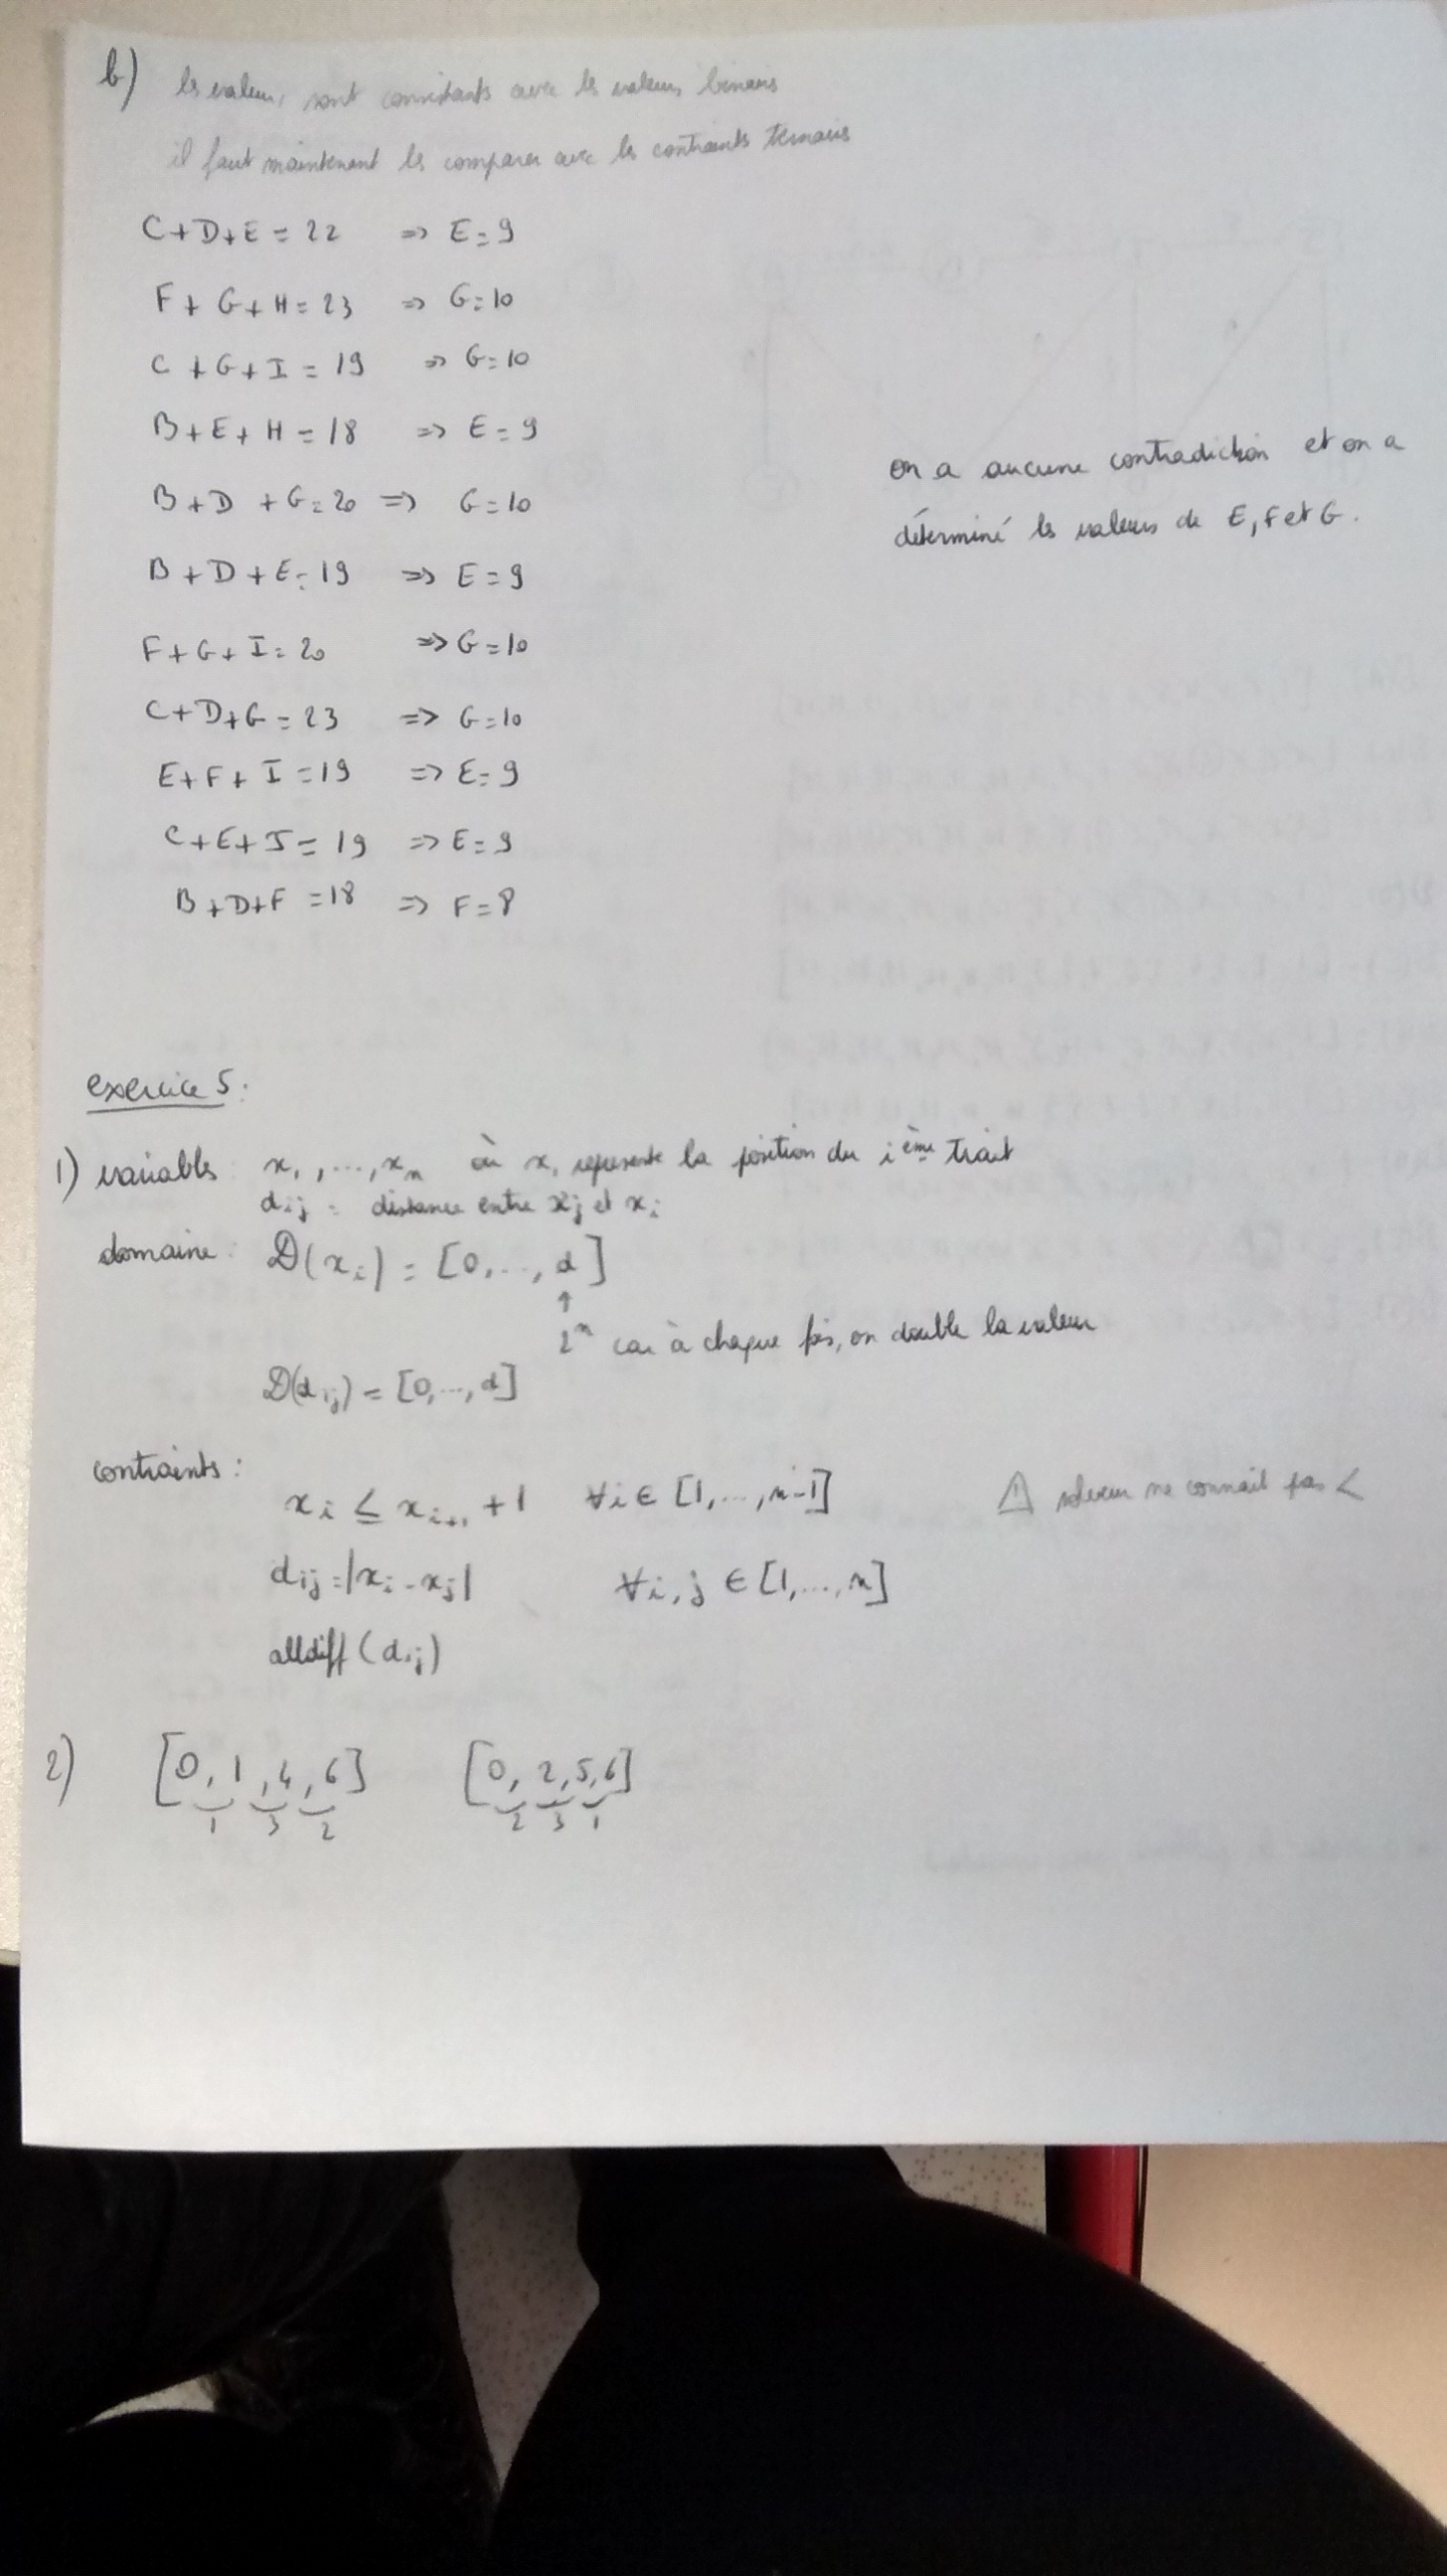 b) les valeurs sont consistants avec les valeurs binaires
il faut maintenant les comparer avec les contraints ternaires
C+D+E = 22 => E=9
F+G+H=23 => G=10
C+G+I=19 => G=10
B+E+H=18 => E=9
B+D+G=20 => G=10
B+D+E=19 => E=9
F+G+I=20 => G=10
C+D+G=23 => G=10
E+F+I=19 => E=9
C+E+I=19 => E=9
B+D+F=18 => F=8
on a aucune contradiction et on a
déterminé les valeurs de E, F et G.
exercice 5:
1) variables : x₁, ..., xₙ où xᵢ represente la position du i ème trait
dij = distance entre xj et xi
domaine : D(xi) = [0, ..., d]
↑
2ⁿ car à chaque fois, on double la valeur
D(dij) = [0, ..., d]
contraints :
xi ≤ xi+1 +1 ∀i ∈ [1, ..., n-1] ⚠ solveur ne connait pas <
dij = |xi - xj| ∀i, j ∈ [1, ..., n]
alldiff (dij)
2) [0, 1, 4, 6] [0, 2, 5, 6]
1 3 2 2 3 1